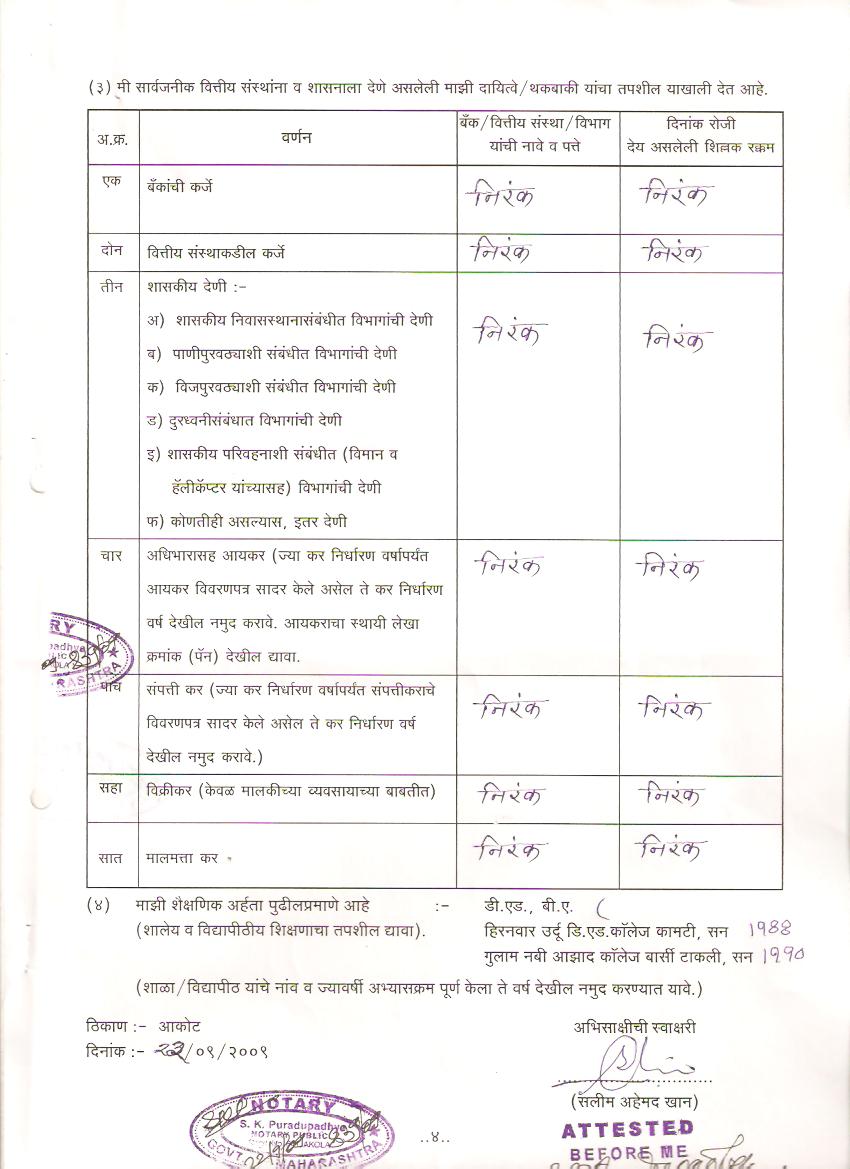 (३) मी सार्वजनीक वित्तीय संस्थांना व शासनाला देणे असलेली माझी दायित्वे/थकबाकी यांचा तपशील याखाली देत आहे.
अ.क्र. वर्णन बँक/वित्तीय संस्था/विभाग यांची नावे व पत्ते दिनांक रोजी देय असलेली शिल्लक रक्कम
एक बँकांची कर्जे निरंक निरंक
दोन वित्तीय संस्थाकडील कर्जे निरंक निरंक
तीन शासकीय देणी :-
अ) शासकीय निवासस्थानासंबंधीत विभागांची देणी निरंक निरंक
ब) पाणीपुरवठ्याशी संबंधीत विभागांची देणी
क) विजपुरवठ्याशी संबंधीत विभागांची देणी
ड) दुरध्वनीसंबंधात विभागांची देणी
इ) शासकीय परिवहनाशी संबंधीत (विमान व
हॅलीकॅप्टर यांच्यासह) विभागांची देणी
फ) कोणतीही असल्यास, इतर देणी
चार अधिभारासह आयकर (ज्या कर निर्धारण वर्षापर्यंत निरंक निरंक
आयकर विवरणपत्र सादर केले असेल ते कर निर्धारण
वर्ष देखील नमुद करावे. आयकराचा स्थायी लेखा
क्रमांक (पॅन) देखील द्यावा.
पाच संपत्ती कर (ज्या कर निर्धारण वर्षापर्यंत संपत्तीकराचे निरंक निरंक
विवरणपत्र सादर केले असेल ते कर निर्धारण वर्ष
देखील नमुद करावे.)
सहा विक्रीकर (केवळ मालकीच्या व्यवसायाच्या बाबतीत) निरंक निरंक
सात मालमत्ता कर निरंक निरंक
(४) माझी शैक्षणिक अर्हता पुढीलप्रमाणे आहे :- डी.एड., बी.ए.
(शालेय व विद्यापीठीय शिक्षणाचा तपशील द्यावा). हिरनवार उर्दू डि.एड.कॉलेज कामटी, सन 1988
गुलाम नबी आझाद कॉलेज बार्सी टाकली, सन 1990
(शाळा/विद्यापीठ यांचे नांव व ज्यावर्षी अभ्यासक्रम पूर्ण केला ते वर्ष देखील नमुद करण्यात यावे.)
ठिकाण :- आकोट अभिसाक्षीची स्वाक्षरी
दिनांक :- २३/०९/२००९
(सलीम अहेमद खान)
NOTARY
S. K. Puradupadhye
NOTARY PUBLIC
GOVT.
MAHARASHTRA
..४..
ATTESTED
BEFORE ME